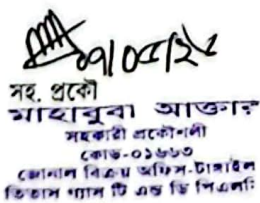 ০৭/০৫/২৫
সহ. প্রকৌ
মাহাবুবা আক্তার
সহকারী প্রকৌশলী
কোড-০১৬৬৩
জোনাল বিক্রয় অফিস-টাঙ্গাইল
তিতাস গ্যাস টি এন্ড ডি পিএলসি